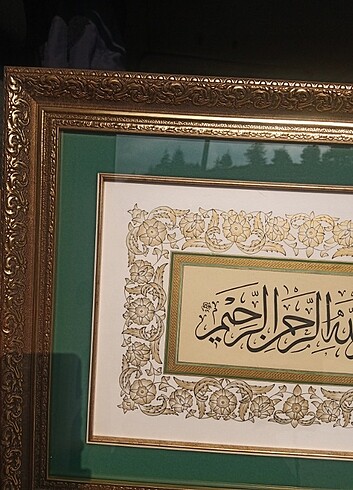 ﷲ الرَّحْمٰنِ الرَّحِيْمِ